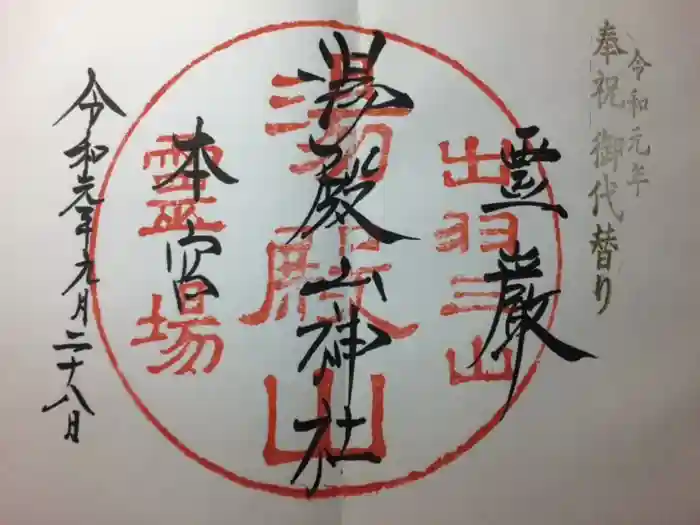 令和元年
奉祝御代替り
霊厳
湯殿山神社
本宮
令和元年九月二十八日
出羽三山
湯殿山
霊場